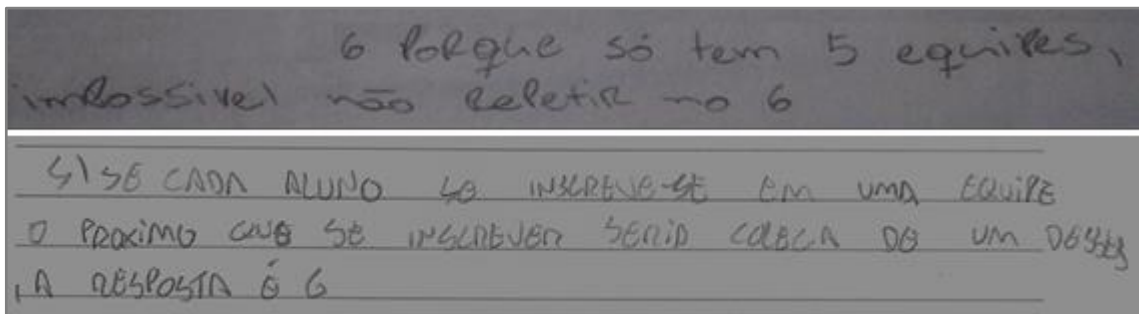 6 PoRque só tem 5 equipes,
impossivel não RePetiR no 6
5) SE CADA ALUNO SO INSCREVE-SE EM UMA EQUIPE
O PROXIMO QUE SE INSCREVER SERIA COLEGA DE UM DESSES
, A RESPOSTA É 6